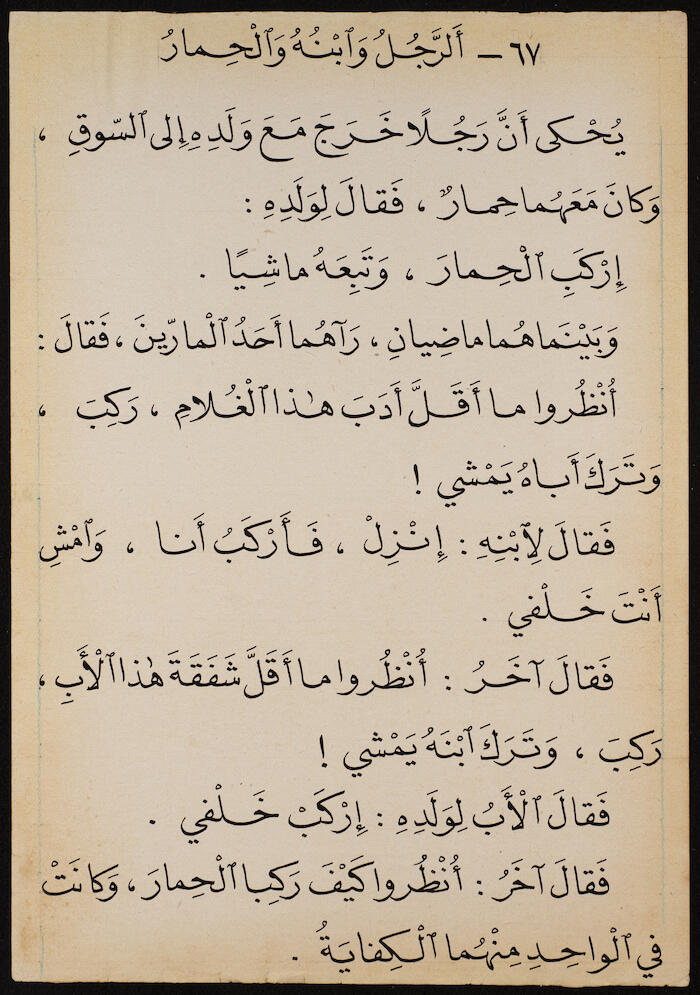 ٦٧ – أَلرَّجُلُ وَٱبْنُهُ وَٱلْحِمارُ
يُحْكى أَنَّ رَجُلًا خَرَجَ مَعَ وَلَدِهِ إِلى ٱلسّوقِ ،
وَكانَ مَعَهُما حِمارٌ ، فَقالَ لِوَلَدِهِ :
إِرْكَبِ ٱلْحِمارَ ، وَتَبِعَهُ ماشِيًا .
وَبَيْنَما هُما ماضِيانِ ، رَآهُما أَحَدُ ٱلْمارّينَ ، فَقالَ :
أُنْظُروا ما أَقَلَّ أَدَبَ هٰذا ٱلْغُلامِ ، رَكِبَ ،
وَتَرَكَ أَباهُ يَمْشي !
فَقالَ لِٱبْنِهِ : إِنْزِلْ ، فَأَرْكَبُ أَنا ، وَٱمْشِ
أَنْتَ خَلْفي .
فَقالَ آخَرُ : أُنْظُروا ما أَقَلَّ شَفَقَةَ هٰذا ٱلْأَبِ ،
رَكِبَ ، وَتَرَكَ ٱبْنَهُ يَمْشي !
فَقالَ ٱلْأَبُ لِوَلَدِهِ : إِرْكَبْ خَلْفي .
فَقالَ آخَرُ : أُنْظُروا كَيْفَ رَكِبا ٱلْحِمارَ ، وَكانَتْ
في ٱلْواحِدِ مِنْهُما ٱلْكِفايَةُ .